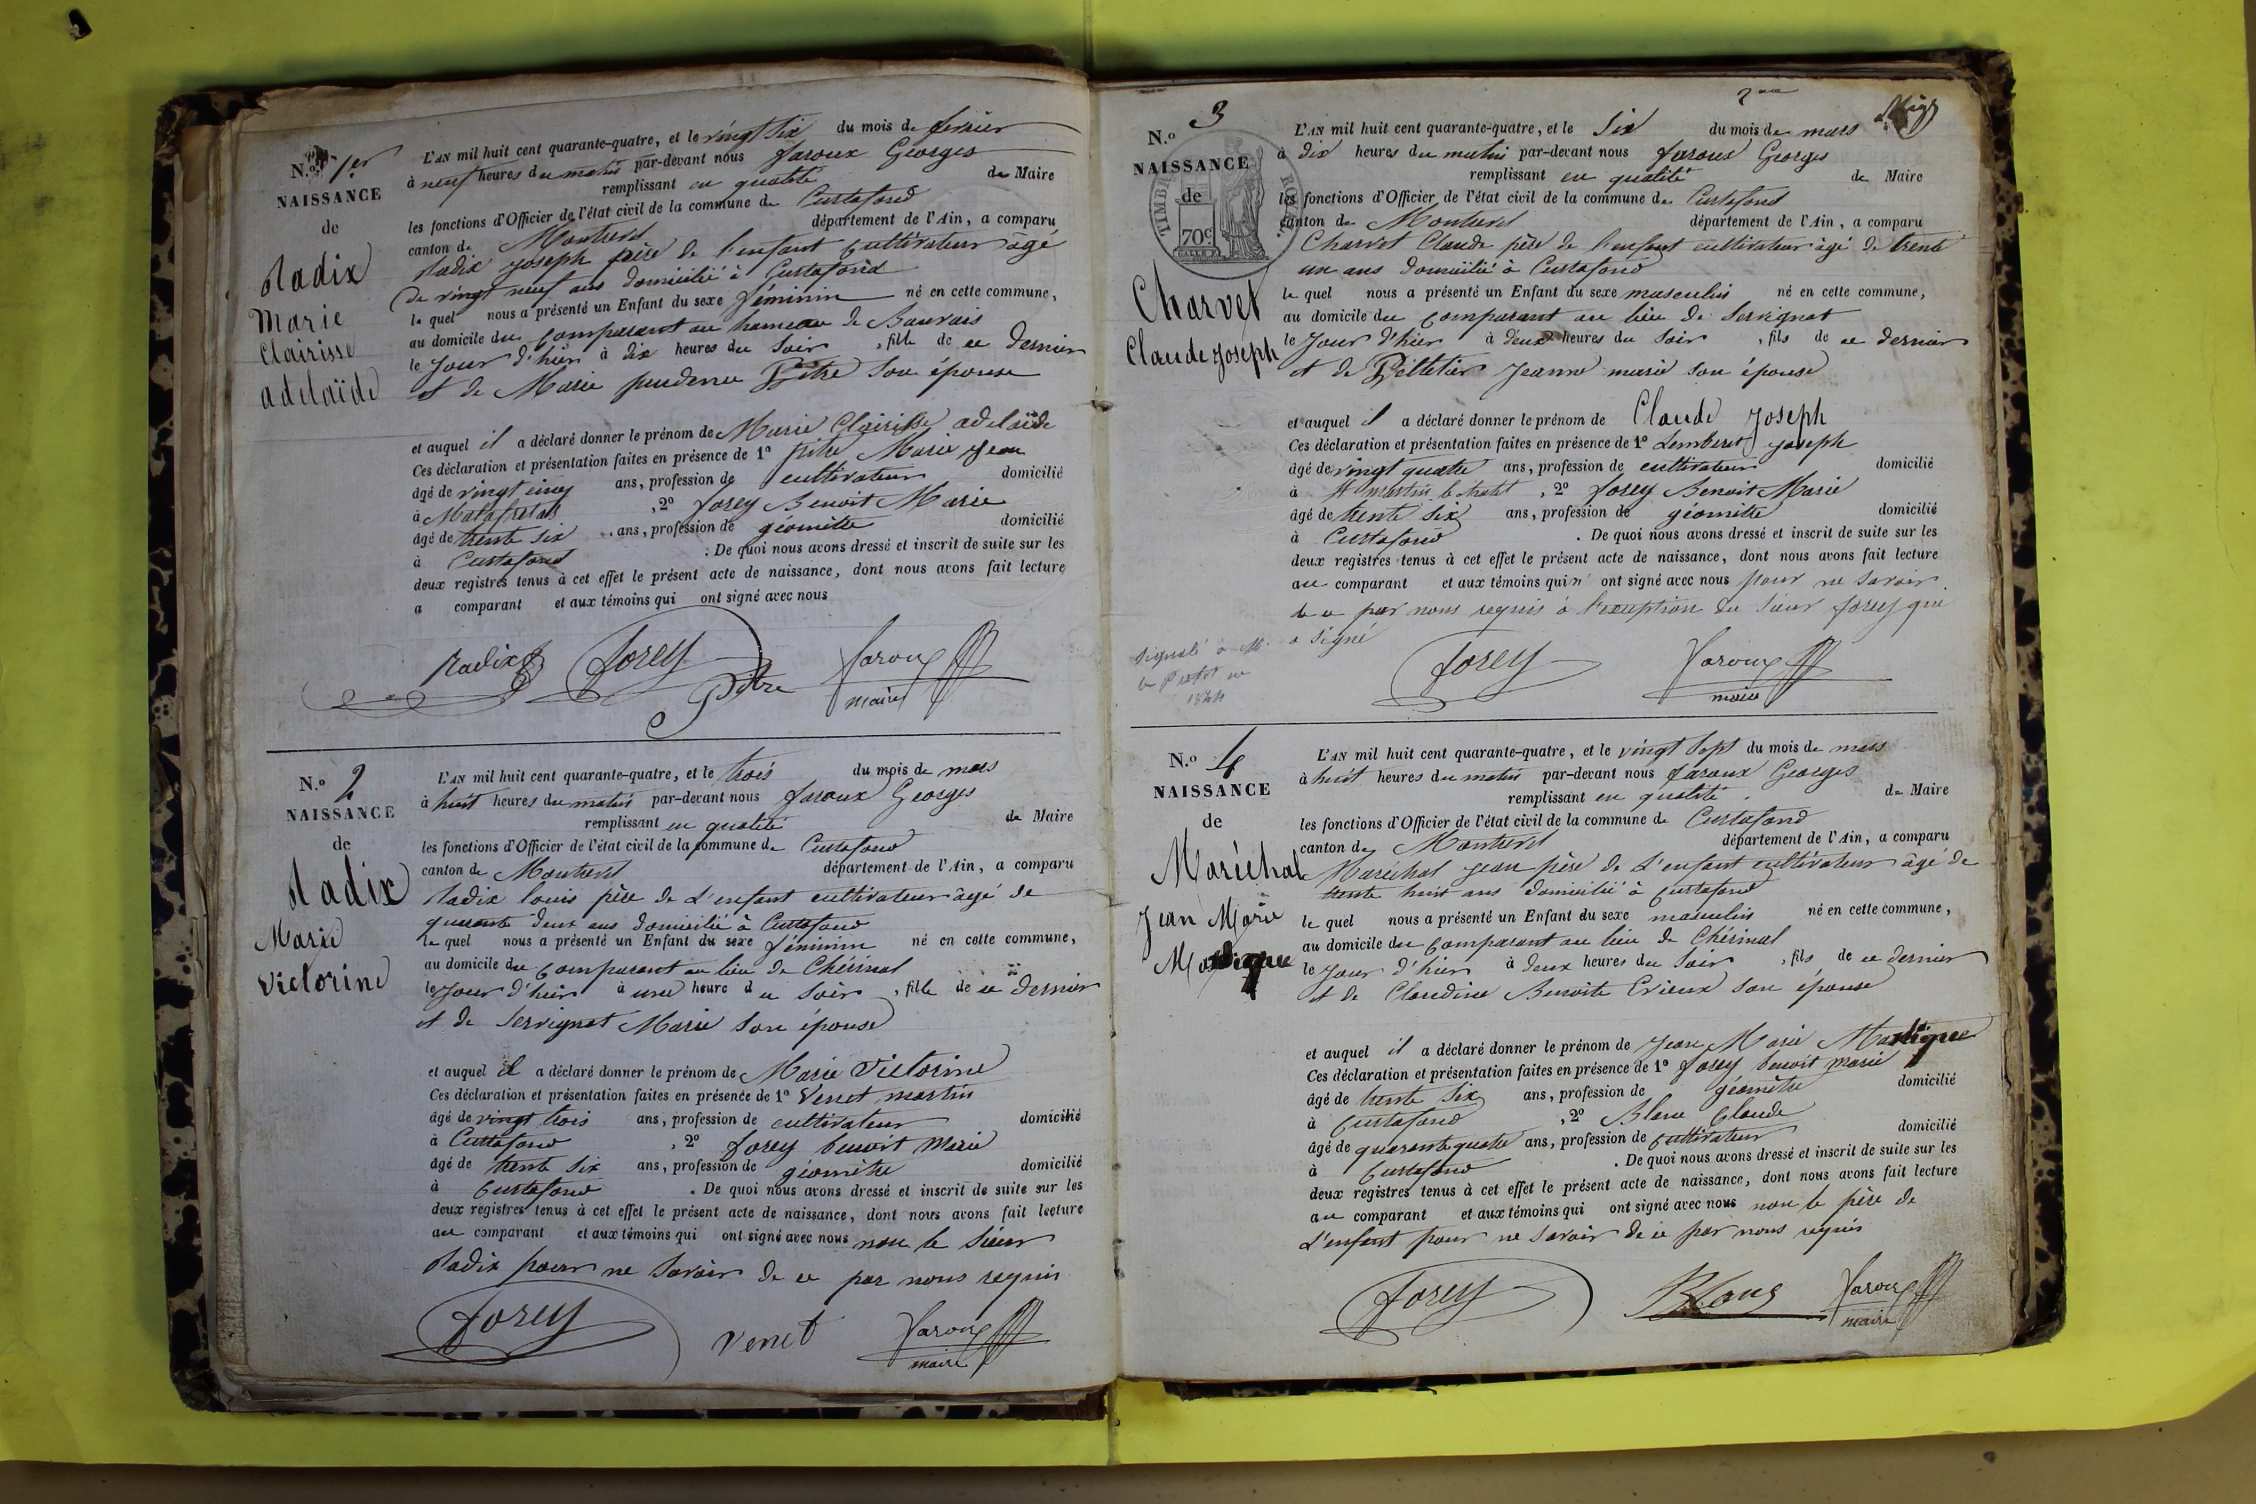 N.º 1er
NAISSANCE
de
Radix
Marie
Clairisse
adelaïde
L'AN mil huit cent quarante-quatre, et le vingt six du mois de février
à neuf heures du matin par-devant nous faroux Georges
remplissant en qualité de Maire
les fonctions d'Officier de l'état civil de la commune de Curtafond
canton de Montrevel département de l'Ain, a comparu
Radix joseph père de l'enfant cultivateur âgé
de vingt neuf ans domicilié à Curtafond
le quel nous a présenté un Enfant du sexe féminin né en cette commune,
au domicile du comparant au hameau de Bauvais
le jour d'hier à dix heures du soir, fille de ce dernier
et de Marie prudence Pitre son épouse
et auquel il a déclaré donner le prénom de Marie Clairisse adelaïde
Ces déclaration et présentation faites en présence de 1º pitre Marie jean
âgé de vingt cinq ans, profession de cultivateur domicilié
à Malafretas, 2º forey Benoit Marie
âgé de trente six ans, profession de géomètre domicilié
à Curtafond. De quoi nous avons dressé et inscrit de suite sur les
deux registres tenus à cet effet le présent acte de naissance, dont nous avons fait lecture
a comparant et aux témoins qui ont signé avec nous
Radix forey Pitre faroux
maire
N.º 2
NAISSANCE
de
Radix
Marie
Victorine
L'AN mil huit cent quarante-quatre, et le trois du mois de mars
à huit heures du matin par-devant nous faroux Georges
remplissant en qualité de Maire
les fonctions d'Officier de l'état civil de la commune de Curtafond
canton de Montrevel département de l'Ain, a comparu
Radix louis père de l'enfant cultivateur âgé de
quarante deux ans domicilié à Curtafond
le quel nous a présenté un Enfant du sexe féminin né en cette commune,
au domicile du comparant au lieu de Chérinal
le jour d'hier à une heure du soir, fille de ce dernier
et de Servignat Marie son épouse
et auquel il a déclaré donner le prénom de Marie Victorine
Ces déclaration et présentation faites en présence de 1º Venet martin
âgé de vingt trois ans, profession de cultivateur domicilié
à Curtafond, 2º forey benoit marie
âgé de trente six ans, profession de géomètre domicilié
à Curtafond. De quoi nous avons dressé et inscrit de suite sur les
deux registres tenus à cet effet le présent acte de naissance, dont nous avons fait lecture
au comparant et aux témoins qui ont signé avec nous non le sieur
Radix pour ne savoir de ce par nous requis
forey venet faroux
maire
2me
N.º 3
NAISSANCE
de
TIMBRE ROYAL
70c
Charvet
Claude joseph
L'AN mil huit cent quarante-quatre, et le six du mois de mars
à dix heures du matin par-devant nous faroux Georges
remplissant en qualité de Maire
les fonctions d'Officier de l'état civil de la commune de Curtafond
canton de Montrevel département de l'Ain, a comparu
Charvet Claude père de l'enfant cultivateur âgé de trente
un ans domicilié à Curtafond
le quel nous a présenté un Enfant du sexe masculin né en cette commune,
au domicile du comparant au lieu de Servignat
le jour d'hier à deux heures du soir, fils de ce dernier
et de Pelletier jeanne marie son épouse
et auquel il a déclaré donner le prénom de Claude joseph
Ces déclaration et présentation faites en présence de 1º Lemberet joseph
âgé de vingt quatre ans, profession de cultivateur domicilié
à St martin le chatel, 2º forey Benoit Marie
âgé de trente six ans, profession de géomètre domicilié
à Curtafond. De quoi nous avons dressé et inscrit de suite sur les
deux registres tenus à cet effet le présent acte de naissance, dont nous avons fait lecture
au comparant et aux témoins qui n' ont signé avec nous pour ne savoir
de ce par nous requis à l'exception du sieur forey qui
a signé
Signalé à M.
le Préfet en
1844
forey faroux
maire
N.º 4
NAISSANCE
de
Maréchal
Jean Marie
L'AN mil huit cent quarante-quatre, et le vingt sept du mois de mars
à huit heures du matin par-devant nous faroux Georges
remplissant en qualité de Maire
les fonctions d'Officier de l'état civil de la commune de Curtafond
canton de Montrevel département de l'Ain, a comparu
Maréchal jean père de l'enfant cultivateur âgé de
trente huit ans domicilié à Curtafond
le quel nous a présenté un Enfant du sexe masculin né en cette commune,
au domicile du comparant au lieu de Chérinal
le jour d'hier à deux heures du soir, fils de ce dernier
et de Claudine Benoite Crieux son épouse
et auquel il a déclaré donner le prénom de jean Marie
Ces déclaration et présentation faites en présence de 1º forey benoit marie
âgé de trente six ans, profession de géomètre domicilié
à Curtafond, 2º Blanc Claude
âgé de quarante quatre ans, profession de cultivateur domicilié
à Curtafond. De quoi nous avons dressé et inscrit de suite sur les
deux registres tenus à cet effet le présent acte de naissance, dont nous avons fait lecture
au comparant et aux témoins qui ont signé avec nous non le père de
l'enfant pour ne savoir de ce par nous requis
forey Blanc faroux
maire